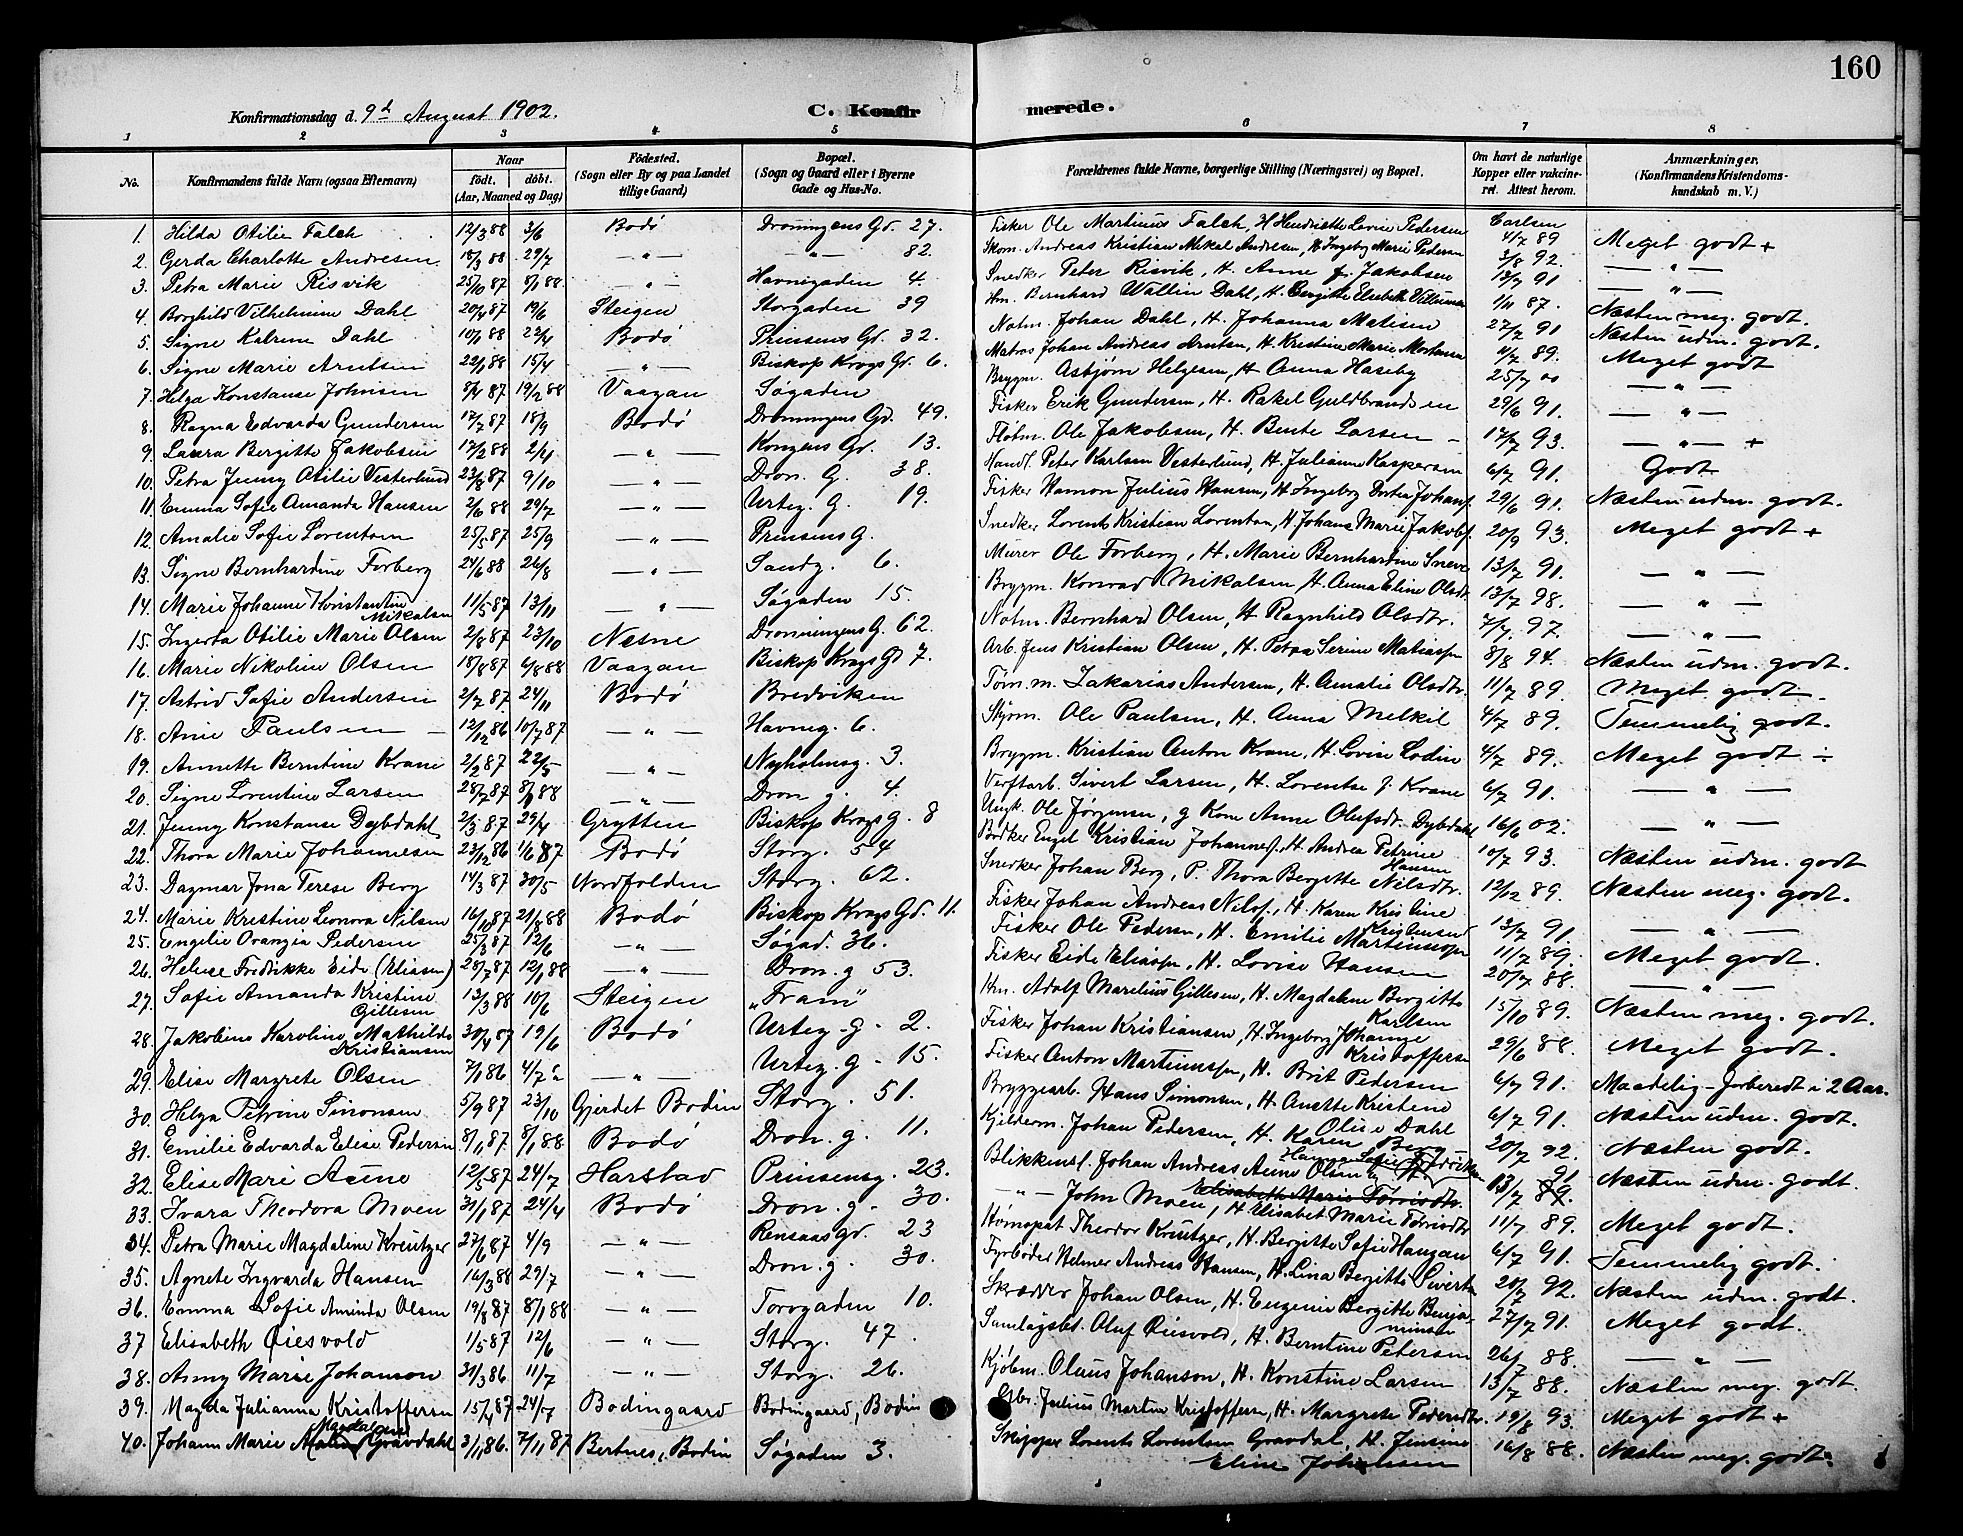 160
Konfirmationsdag d. 9d August 1902. C. Konfirmerede.
1 2 3 4 5 6 7 8
No. Konfirmandens fulde Navn (ogsaa Efternavn) Naar født, døbt. (Aar, Maaned og Dag) Fødested. (Sogn eller By og paa Landet tillige Gaard) Bopæl. (Sogn og Gaard eller i Byerne Gade og Hus-No.) Forældrenes fulde Navne, borgerlige Stilling (Næringsvei) og Bopæl. Om havt de naturlige Kopper eller vakcineret. Attest herom. Anmærkninger. (Konfirmandens Kristendomskundskab m. V.)
1. Hilda Otilie Falch 12/3 88 3/6 Bodø Dronningens Gd. 27. Fisker Ole Martinus Falch, H Henriette Lovise Pedersen Carlsen 4/7 89 Meget godt +
2. Gerda Charlotte Andresen 18/3 88 29/7 — " — — " — 82. Skom. Andreas Kristian Mikal Andresen, H. Ingeborg Marie Pedersen 3/8 92. — " —
3. Petra Marie Risvik 25/10 87 8/1 88. — " — Havnegaden 4. Snedker Peter Risvik, H. Anne f. Jakobsen 13/7 91 — " —
4. Borghild Vilhelmine Dahl 20/4 87 19/6 Steigen Storgaden 39 Hm. Bernhard Wallin Dahl, H. Bergitte Elisebeth Villumsen 1/11 87. Næsten meg. godt.
5. Signe Katrine Dahl 10/1 88 22/4 Bodø Prinsens Gd. 32. Notm. Johan Dahl, H. Johanna Matisen 27/7 91 Næsten udm. godt.
6. Signe Marie Arntsen 22/1 88 15/4 — " — Biskop Krogs Gd. 6. Matros Johan Andreas Arntsen, H. Kristine Marie Mortensen 4/7 89. Meget godt
7. Helga Konstanse Johnsen 8/4 87 19/2 88 Vaagan Søgaden Bryggm. Asbjørn Helgesen, H. Anna Haseby 25/7 00 — " —
8. Ragna Edvarda Gundersen 17/7 87 18/9 Bodø Dronningens Gd. 49. Fisker Erik Gundersen, H. Rakel Guldbrandsen 29/6 91. — " —
9. Laura Bergitte Jakobsen 17/2 88 2/4 — " — Kongens Gd. 13. Fløtm. Ole Jakobsen, H. Bente Larsen — 14/7 93. — " — +
10. Petra Jenny Otilie Vesterlund 23/8 87 9/10 — " — Dron. G. 38. Handl. Peter Karlsen Vesterlund, H. Julianne Kaspersen 6/7 91. Godt
11. Emma Sofie Amanda Hansen 2/6 88 29/7 — " — Urteg. G. 19. Fisker Hamon Julius Hansen, H. Ingeborg Dortea Johansf. 29/6 91. Næsten udm. godt.
12. Amalie Sofie Lorentsen 25/5 87 25/9 — " — Prinsens G. Snedker Lorents Kristian Lorentsen, H. Johana Marie Jakobsf. 20/9 93. Meget godt +
13. Signe Bernhardine Forberg 24/6 88 26/8 — " — Sandg. 6. Murer Ole Forberg, H. Marie Bernhardine Sneve 13/7 91. — " —
14. Marie Johanne Konstantine Mikalsen 11/5 87 13/11 — " — Søgaden 15. Bryggm. Konrad Mikalsen, H. Anna Eline Olsdtr. 13/7 98. — " —
15. Ingerta Otilie Marie Olsen 2/8 87 23/10 Næsne Dronningens G. 62. Notm. Bernhard Olsen, H. Ragnhild Olsdtr. 7/7 97. — " —
16. Marie Nikoline Olsen 18/8 87 6/8 88 Vaagan Biskop Krogs Gd 7. Arb. Jens Kristian Olsen, H. Petra Serine Matiassen 8/8 94. Næsten udm. godt.
17. Astrid Sofie Andersen 2/7 87 24/11 Bodø Bredviken Tøm.m. Zakarias Andersen, H. Amalie Olsdtr. 11/7 89. Meget godt.
18. Anie Paulsen — 12/12 86 10/7 87 — " — Havneg. 6. Styrm. Ole Paulsen, H. Anna Melkil 4/7 89. Temmelig godt.
19. Annette Berntine Krane 2/2 87 22/5 — " — Nyholmsg. 3. Bryggm. Kristian Anton Krane, H. Lovise Lodin 4/7 89. Meget godt ÷
20. Signe Lorentine Larsen 28/7 87 8/1 88 — " — Dron g. 4. Verftarb. Sivert Larsen, H. Lorentse f. Krane 6/7 91. — " —
21. Jenny Konstanse Dybdahl 2/3 87 29/4 Grytten Biskop Krogs g. 8 Ungk. Ole Jørgensen, g Kone Anne Olufsdr. Dybdahl 16/6 02. — " —
22. Thora Marie Johannesen 23/12 86 1/6 87 Bodø Storg. 54 Bødker Engel Kristian Johannesf. H. Andrea Petrine Hansen 10/7 93. Næsten udm. godt
23. Dagmar Jona Terese Berg 14/3 87 30/5 Nordfolden Storg. 62. Snedker Johan Berg, P. Thora Bergitte Nilsdtr. 12/12 89. Næsten meg. godt.
24. Marie Kristine Leonora Nilsen 16/10 87 21/8 88 Bodø Biskop Krogs Gd. 11. Fisker Johan Andreas Nilsf., H. Karen Kristine Kristensend 13/7 91. — " —
25. Engelie Orangia Pedersen 25/3 87 12/6 — " — Søgad. 36. Fisker Ole Pedersen, H. Emilie Martinussen 11/7 89. Meget godt.
26. Helene Fredrikke Eide (Eliasen) 28/7 87 12/1 88 — " — Dron. g 53. Fisker Eide Eliassen, H. Lovise Hansen 20/7 88. — " —
27. Sofie Amanda Kristine Gillesen 13/3 88 10/6 Steigen „Fram" Km. Adolf Marelius Gillesen, H. Magdalene Bergitte Karlsen 15/10 89. Næsten meg. godt.
28. Jakobine Karoline Mathilde Kristiansen 30/4 87 19/6 Bodø Urteg. g. 2. Fisker Johan Kristiansen, H. Ingeborg Johanne Kristoffersen 29/6 88. Meget godt.
29. Elise Margrete Olsen 7/1 86 4/7 " — " — Urteg. g 15. Fisker Anton Martinussen, H. Brit Pedersen 6/7 91. Maadelig — forberedt i 2 Aar.
30. Helga Petrine Simonsen 5/9 87 23/10 Gjerdet Bodin Storg. 51. Bryggearb. Hans Simonsen, H. Anette Kristene Olsie Dahl 6/7 91. Næsten udm. godt.
31. Emilie Edvarda Elise Pedersen 8/1 87 8/1 88 Bodø Dron. g. 11. Kjelderm. Johan Pedersen, H. Karen Berg 20/7 92. Næsten godt.
32. Elise Marie Aune 12/5 87 24/7 Harstad Prinsensg. 23. Blikkensl. Johan Andreas Aune Olsen, H. Hanna Sofie Fredriksen 13/7 91 Næsten udm. godt.
33. Ivara Theodora Moen 31/1 87 24/4 Bodø Dron. g. 30. — " — John Moen, H. Elisabet Marie Torrisdtr. 11/7 89. Meget godt.
34. Petra Marie Magdaline Kreutzer 27/6 87 4/9 — " — Rensaasgd. 23 Homøopat Theodor Kreutzer, H. Bergitte Sofie Haugan 6/7 91. Temmelig godt.
35. Agnete Ingvarda Hansen 16/3 88 29/7 — " — Dron. g. 30. Fyrbøder Helmer Andreas Hansen, H. Lina Bergitte Sivertsen 20/7 92. Næsten udm. godt.
36. Emma Sofie Aminda Olsen 19/8 87 8/1 88 — " — Torvgaden 10. Skrædder Johan Olsen, H. Eugenie Bergitte Benjaminsen 27/7 91. Meget godt.
37 Elisabeth Øiesvold 1/5 87 12/6 — " — Storg. 47. Samlagsbst. Oluf Øiesvold, H. Berntine Petersen 26/7 88. — " —
38. Anny Marie Johanson 31/3 86. 11/7 — " — Storg. 26. Kjøbm. Olaus Johanson, H. Konstine Larsen 13/7 88. Næsten meg. godt.
39. Magda Julianna Kristoffersen 15/4 87 24/7 Bodingaard Bodingaard, Bodin Gbr. Julius Martin Kristoffersen, H. Margrete Pedersdtr. 19/8 93. Meget godt +
40. Johann Marie Magdalena Gravdahl 3/1 86. 7/1 87 Bertnes, Bodin Søgaden 3. Skipper Lorents Lorentsen Gravdal, H. Jensine Eline Johansen 16/8 88. Næsten meg. godt.